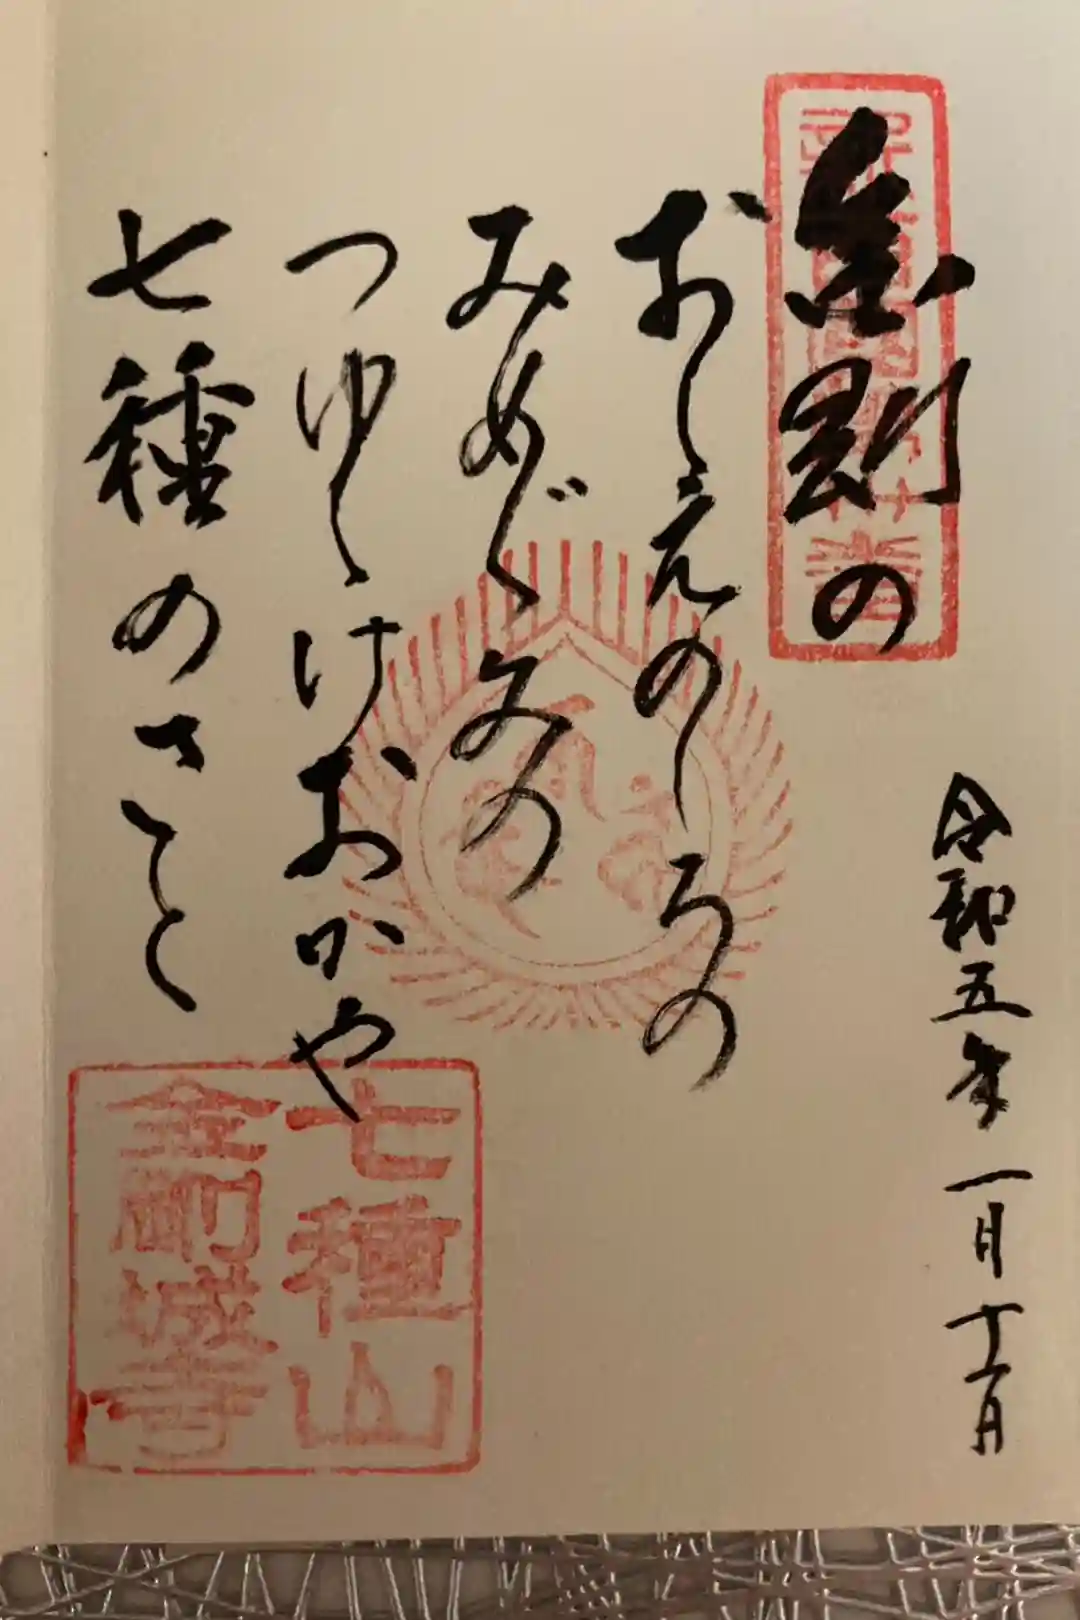 金剛の
おしえのしろの
みめぐみの
つゆしけおかや
七種のさと
令和五年一月十一日
七種山
金剛城寺